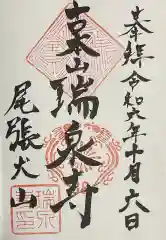 奉拝 令和六年十月六日
山瑞泉寺
尾張犬山